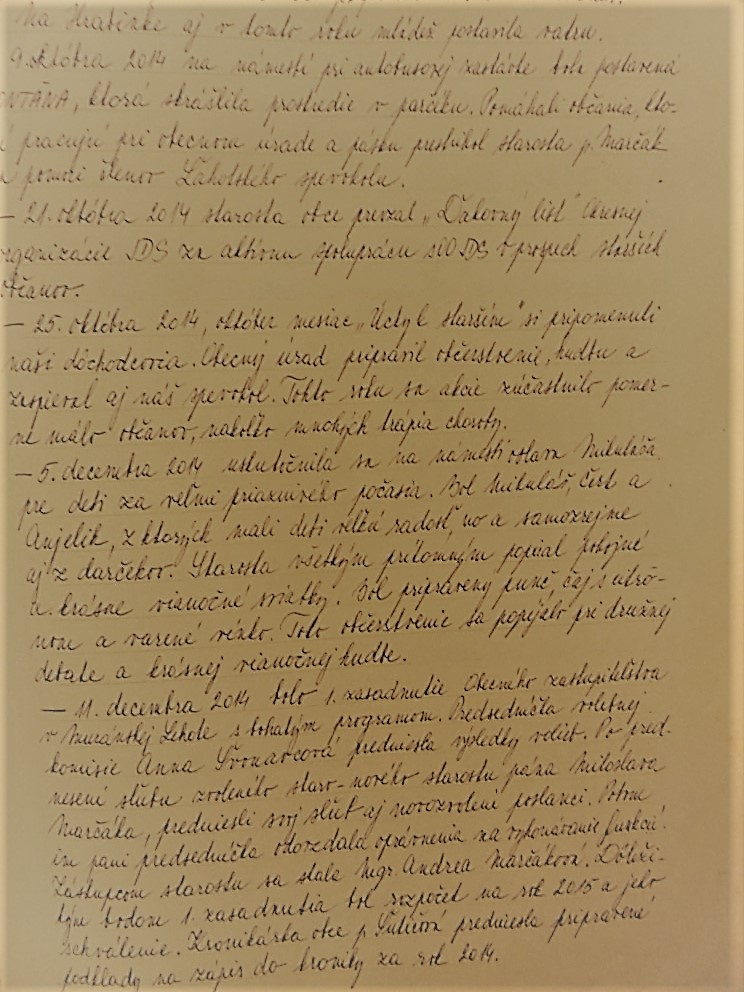 Na Hrabinke aj v tomto roku mládež postavila vatru.
9. októbra 2014 na námestí pri autobusovej zastávke bola postavená
ONTÁNA, ktorá skrášlila prostredie v parčíku. Pomáhali občania, kto-
í pracujú pri obecnom úrade a pásku prestrihol starosta p. Marčák
a pomoci členov Lahotského spevokolu.
— 21. októbra 2014 starosta obce prevzal „Ďakovný list" Okresnej
organizácie JDS za aktívnu spoluprácu s OO JDS v prospech starších
občanov.
— 25. októbra 2014, október mesiac „Úcty k starším" si pripomenuli
naši dôchodcovia. Obecný úrad pripravil občerstvenie, hudbu a
zaspieval aj náš spevokol. Tohto roku sa akcie zúčastnilo pomer-
ne málo občanov, nakoľko mnohých trápia choroby.
— 5. decembra 2014 uskutočnila sa na námestí oslava Mikuláša
pre deti za veľmi priaznivého počasia. Bol Mikuláš, čert a
Anjelik, z ktorých mali deti veľkú radosť, no a samozrejme
aj z darčekov. Starosta všetkým prítomným poprial pokojné
a krásne vianočné sviatky. Bol pripravený punč, čaj s citró-
nom a varené vínko. Toto občerstvenie sa popíjalo pri družnej
debate a krásnej vianočnej hudbe.
— 11. decembra 2014 bolo 1. zasadnutie Obecného zastupiteľstva
v Muránskej Lehote s bohatým programom. Predsedníčka volebnej
komisie Anna Švonavcová predniesla výsledky volieb. Po pred-
nesení sľubu zvoleného staro-nového starostu pána Miloslava
Marčáka, predniesli svoj sľub aj novozvolení poslanci. Potom
im pani predsedníčka odovzdala oprávnenia na vykonávanie funkcií.
Zástupcom starostu sa stala Mgr. Andrea Marčáková. Dôleži-
tým bodom 1. zasadnutia bol rozpočet na rok 2015 a jeho
schválenie. Kronikárka obce p. predniesla pripravené
podklady na zápis do kroniky za rok 2014.